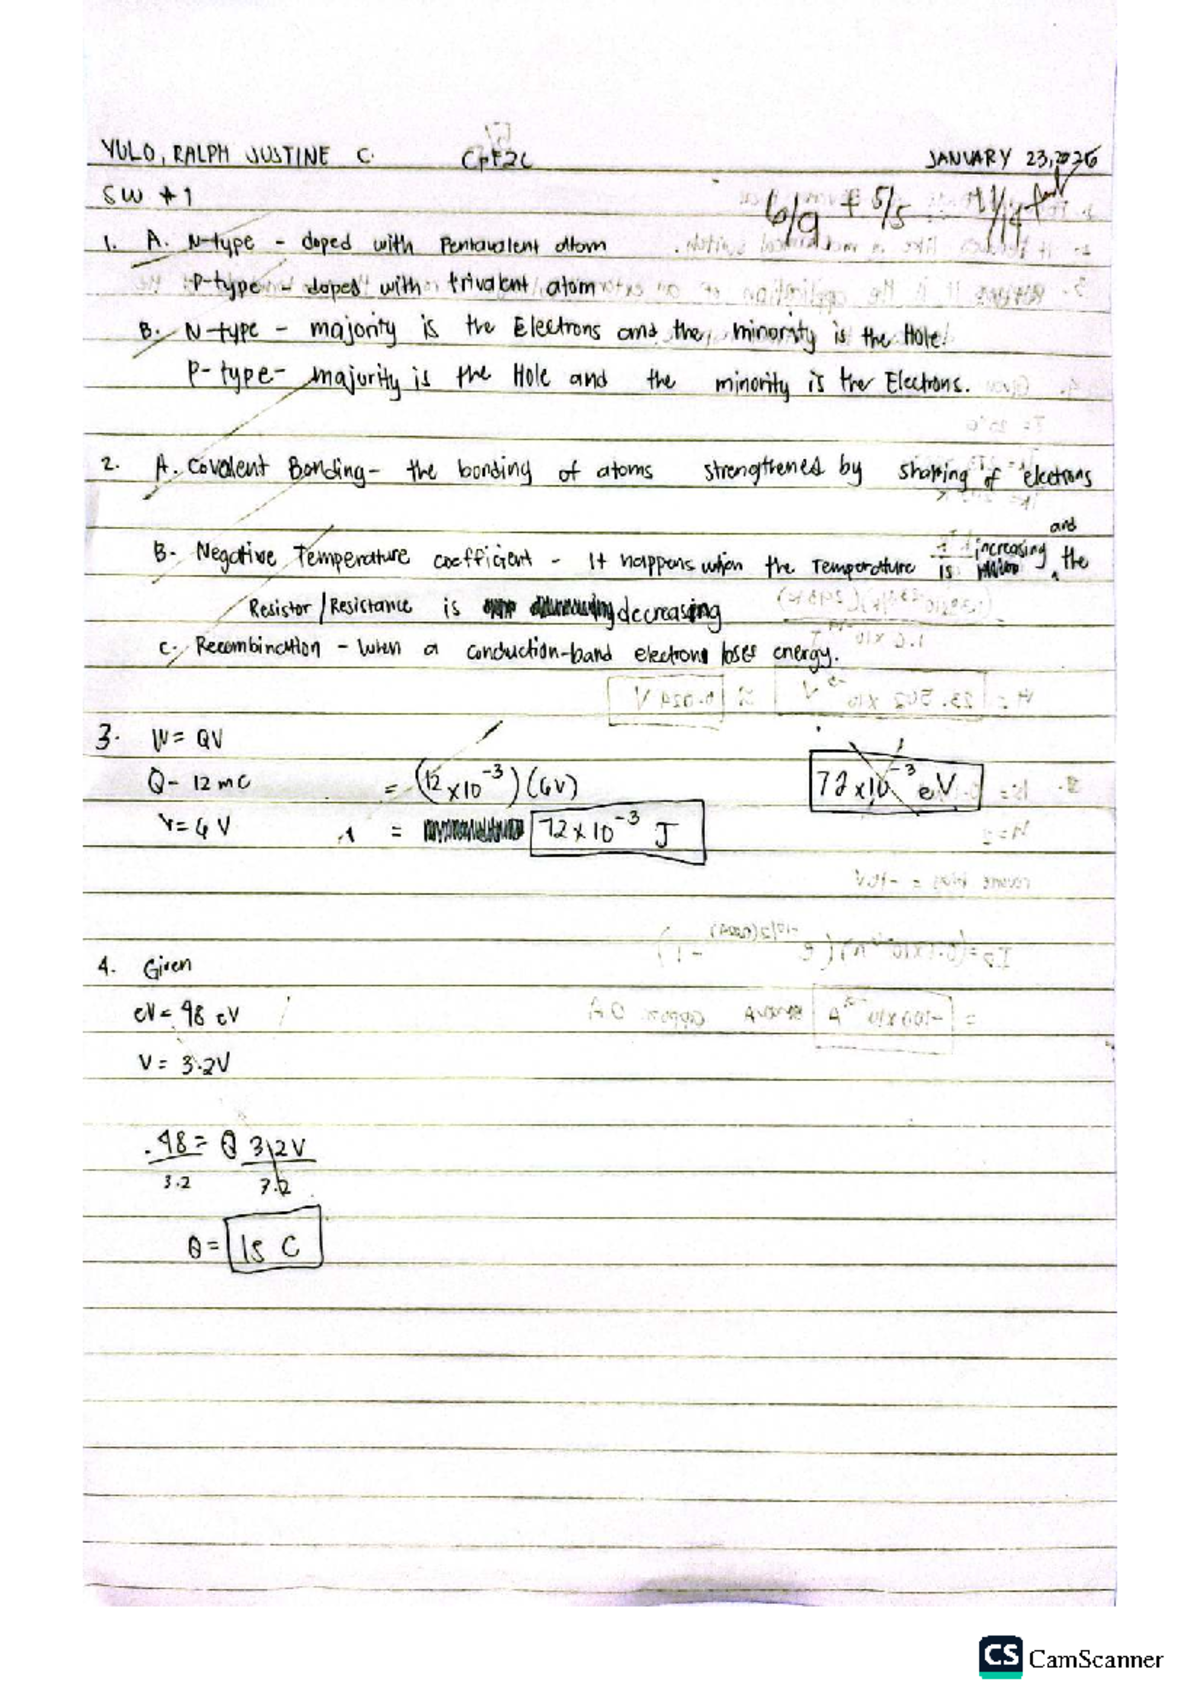 YULO, RALPH JUSTINE C. CpE2C JANUARY 23, 2026
SW #1
6/9 + 5/5 = 11/14
1. A. N-type - doped with Pentavalent atom
P-type - doped with trivalent atom
B. N-type - majority is the Electrons and the minority is the Hole.
P-type - majority is the Hole and the minority is the Electrons.
2. A. Covalent Bonding - the bonding of atoms strengthened by sharing of electrons
B. Negative Temperature coefficient - It happens when the Temperature is increasing and the
Resistor/Resistance is decreasing
C. Recombination - When a conduction-band electron loses energy.
3. W = QV
Q - 12 mC = (12 x10⁻³)(6V) 72 x10⁻³ eV
V = 6 V = 72 x 10⁻³ J
4. Given
eV = 48 eV
V = 3.2V
48 = Q 3.2V
3.2 3.2
Q = 15 C
CS CamScanner